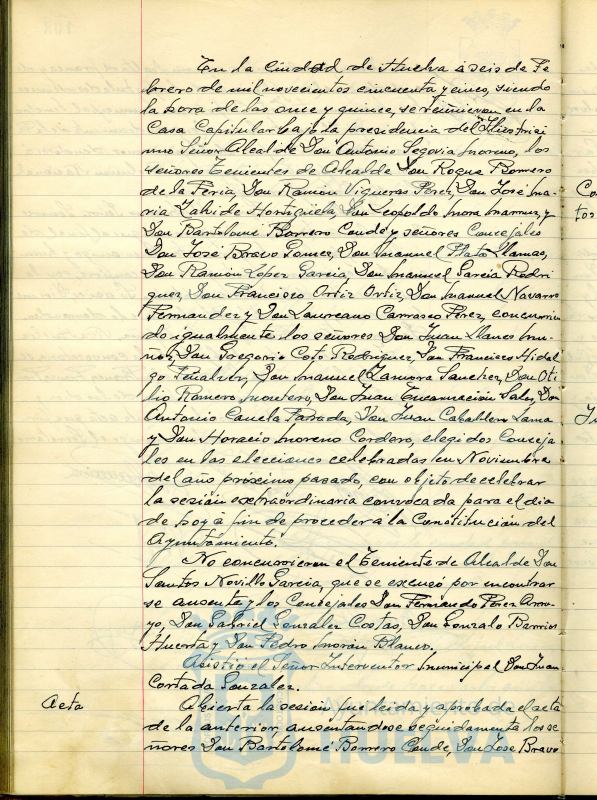 En la Ciudad de Huelva a seis de Fe
brero de mil novecientos cincuenta y cinco, siendo
la hora de las once y quince, se reunieron en la
Casa Capitular bajo la presidencia del Ilustrísi
mo Señor Alcalde Don Antonio Segovia Moreno, los
señores Tenientes de Alcalde Don Roque Borrero
de la Feria, Don Ramón Vigueras Pérez, Don José Ma
ria Zalvide Hortigüela, Don Leopoldo Mora y
Don Bartolomé Borrero Conde y señores Concejales
Don José Bravo Gomez, Don Manuel Plata Llamas,
Don Ramón Lopez García, Don Manuel García Rodri
guez, Don Francisco Ortiz Ortiz, Don Manuel Navarro
Fernandez y Don Laureano Carrasco Pérez, concurrien
do igualmente los señores Don Juan Llanes Mu
ñoz, Don Gregorio Coto Rodriguez, Don Francisco Hidal
go Peñalver, Don Manuel Zamora Sanchez, Don Oti
lio Romero Montero, Don Juan Encarnación Don
Antonio Canela Parrada, Don Juan Caballero Lama
y Don Horacio Moreno Cordero, elegidos Conceja
les en las elecciones celebradas en Noviembre
del año próximo pasado, con objeto de celebrar
la sesión extraordinaria convocada para el dia
de hoy a fin de proceder a la Constitución del
Ayuntamiento.
No concurrieron el Teniente de Alcalde Don
Santos Novillo García, que se excusó por encontrar
se ausente y los Concejales Don Fernando Pérez Arro
yo, Don Gabriel Gonzalez Costas, Don Gonzalo Barrios
Huerta y Don Pedro Morán Blanco.
Asistió el Señor Interventor Municipal Don Juan
Cortada Gonzalez.
Acta
Abierta la sesión fue leida y aprobada el acta
de la anterior, ausentandose seguidamente los se
ñores Don Bartolomé Borrero Conde, Don José Bravo
HUELVA